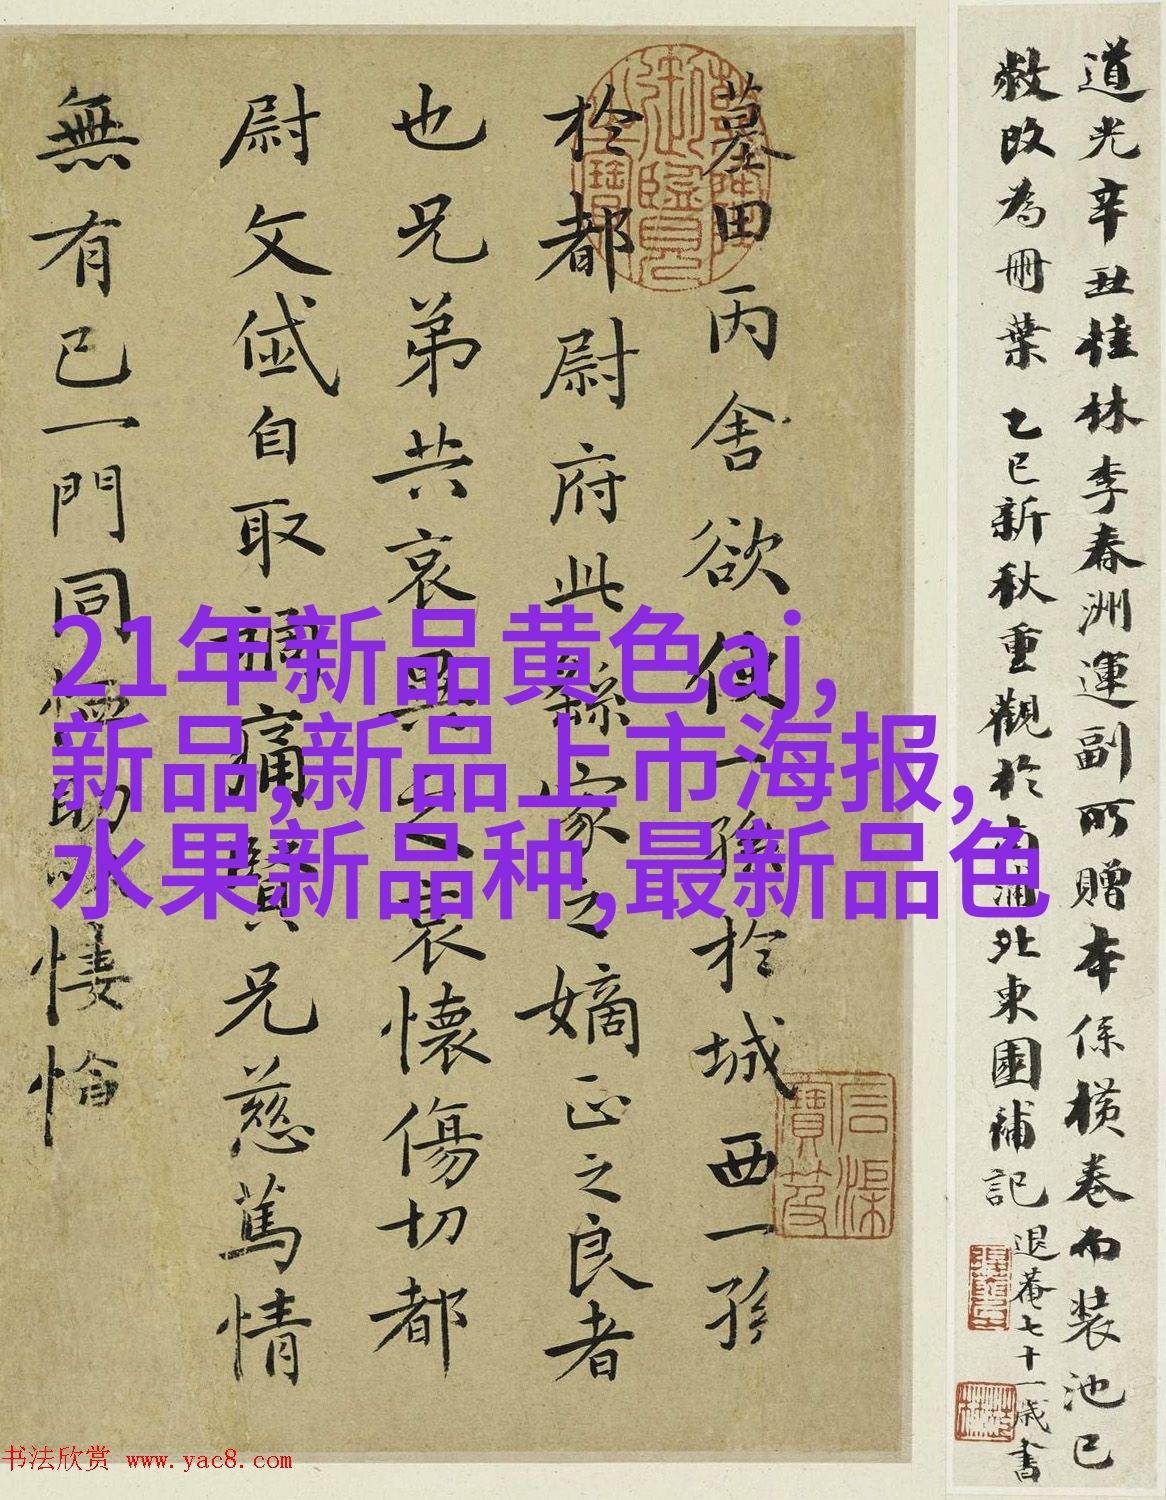 道光辛丑桂林李春洲運副所贈本係橫卷而裝池已
敝改為冊葉 乙巳新秋重觀於南浦北東園補記 退菴七十一歲書
墓田丙舍欲使一孫於城西一孫
於都尉府此繇家之嫡正之良者
也兄弟共哀異之哀懷傷切都
尉文岱自取禍痛賢兄慈篤情
無有已一門同恤助以悽愴
乾隆御覽之寶
21年新品黄色aj,
新品,新品上市海报,
水果新品种,最新品色
书法欣赏 www.yac8.com